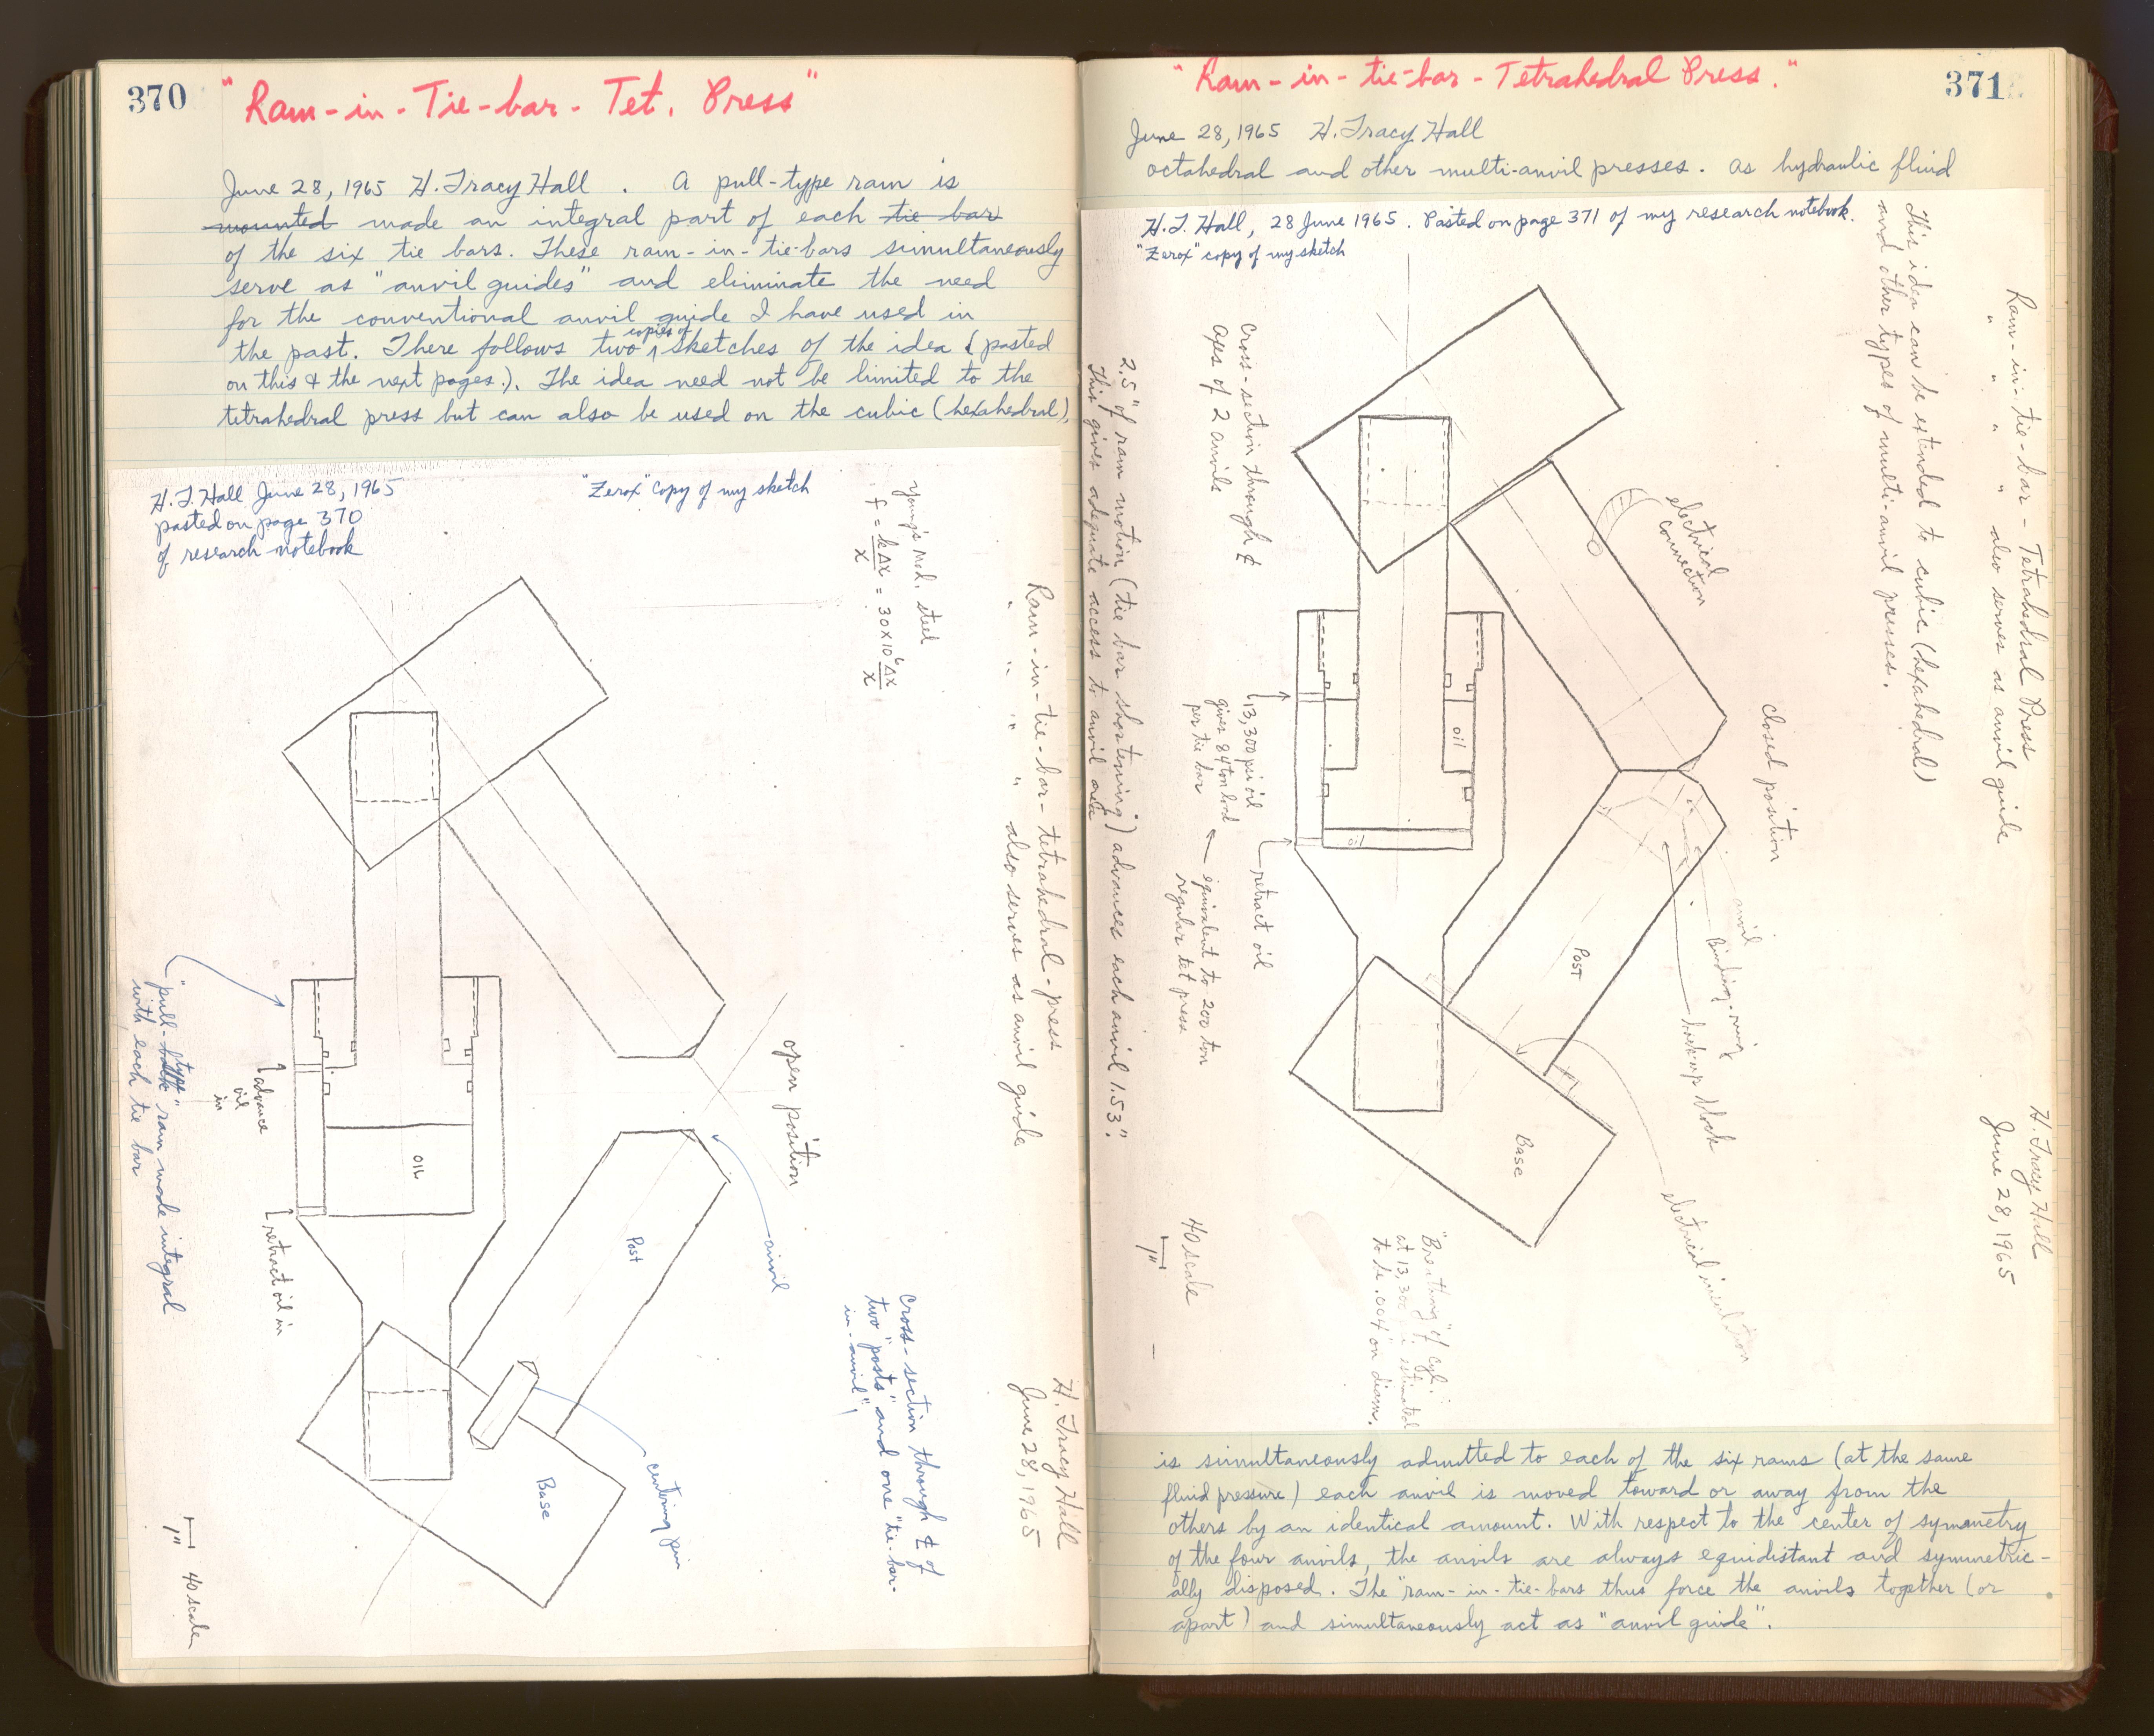 370
"Ram-in-Tie-bar-Tet. Press"
June 28, 1965 H. Tracy Hall. A pull-type ram is
mounted made an integral part of each tie bar
of the six tie bars. These ram-in-tie-bars simultaneously
serve as "anvil guides" and eliminate the need
for the conventional anvil guide I have used in
the past. There follows two copies of sketches of the idea (pasted
on this & the next pages.). The idea need not be limited to the
tetrahedral press but can also be used on the cubic (hexahedral),
H. T. Hall June 28, 1965
pasted on page 370
of research notebook
"Zerox" copy of my sketch
Young's mod. steel
f = kΔx/x = 30x10⁶ Δx/x
Ram-in-tie-bar-tetrahedral-press
" " " " also serves as anvil guide
H. Tracy Hall
June 28, 1965
open position
anvil
Post
Base
centering pin
cross-section through ℄ of
two "posts" and one "tie-bar-
in-anvil"
oil
advance
oil
in
retract oil in
"pull-type" ram made integral
with each tie bar
1" 40 scale
371
"Ram-in-tie-bar-Tetrahedral Press."
June 28, 1965 H. Tracy Hall
octahedral and other multi-anvil presses. As hydraulic fluid
H. T. Hall, 28 June 1965. Pasted on page 371 of my research notebook.
"Zerox" copy of my sketch
Ram-in-tie-bar-Tetrahedral Press
" " " " also serves as anvil guide
H. Tracy Hall
June 28, 1965
This idea can be extended to cubic (hexahedral)
and other types of multi-anvil presses.
closed position
electrical
connection
anvil
binding ring
backup block
electrical insulation
Post
Base
oil
oil
Cross-section through ℄
axes of 2 anvils
13,300 psi oil
gives 84 ton load
per tie bar
equivalent to 200 ton
regular tet press
retract oil
"Breathing" of cyl.
at 13,300 is estimated
to be .004" on diam.
40 scale
1"
2.5" of ram motion (tie bar shortening) advances each anvil 1.53".
This gives adequate access to anvil area
is simultaneously admitted to each of the six rams (at the same
fluid pressure) each anvil is moved toward or away from the
others by an identical amount. With respect to the center of symmetry
of the four anvils, the anvils are always equidistant and symmetric-
ally disposed. The "ram-in-tie-bars thus force the anvils together (or
apart) and simultaneously act as "anvil guide".